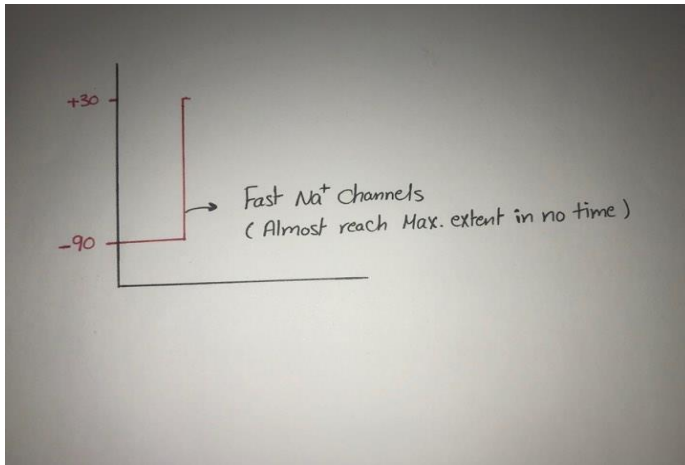 +30
Fast Na⁺ Channels
( Almost reach Max. extent in no time )
-90